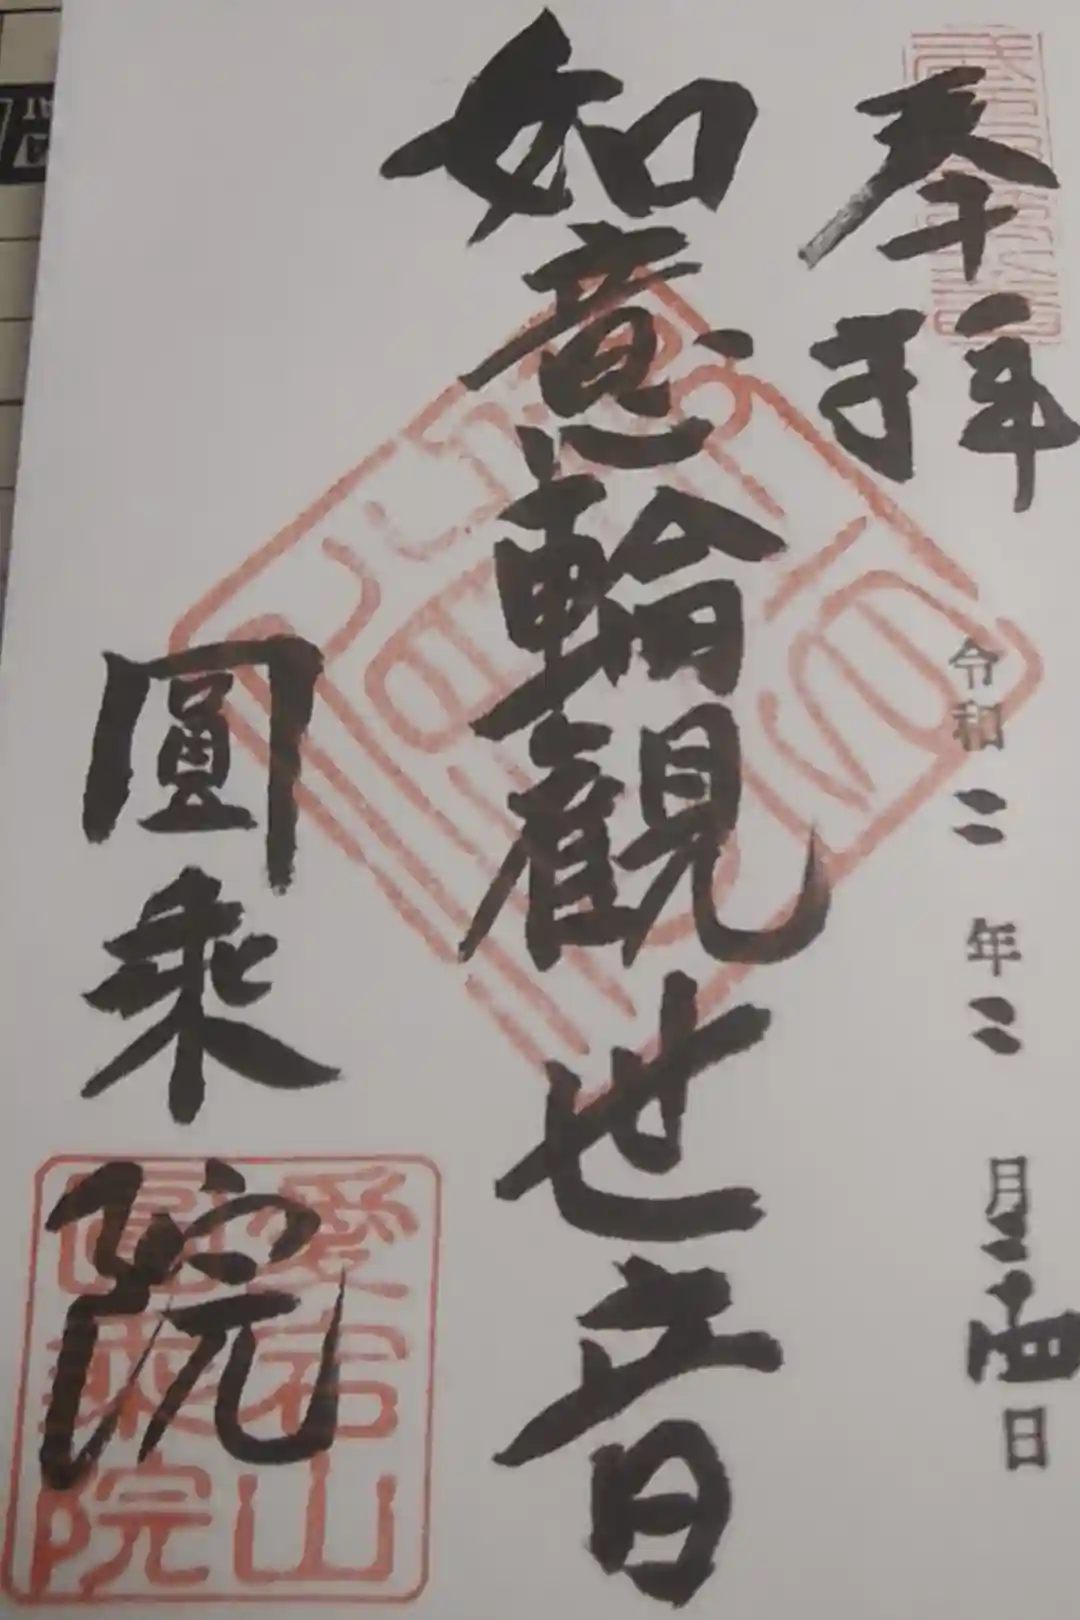 奉拝
令和二年二月二十四日
如意輪觀世音
圓乘院
愛宕山
圓乘院